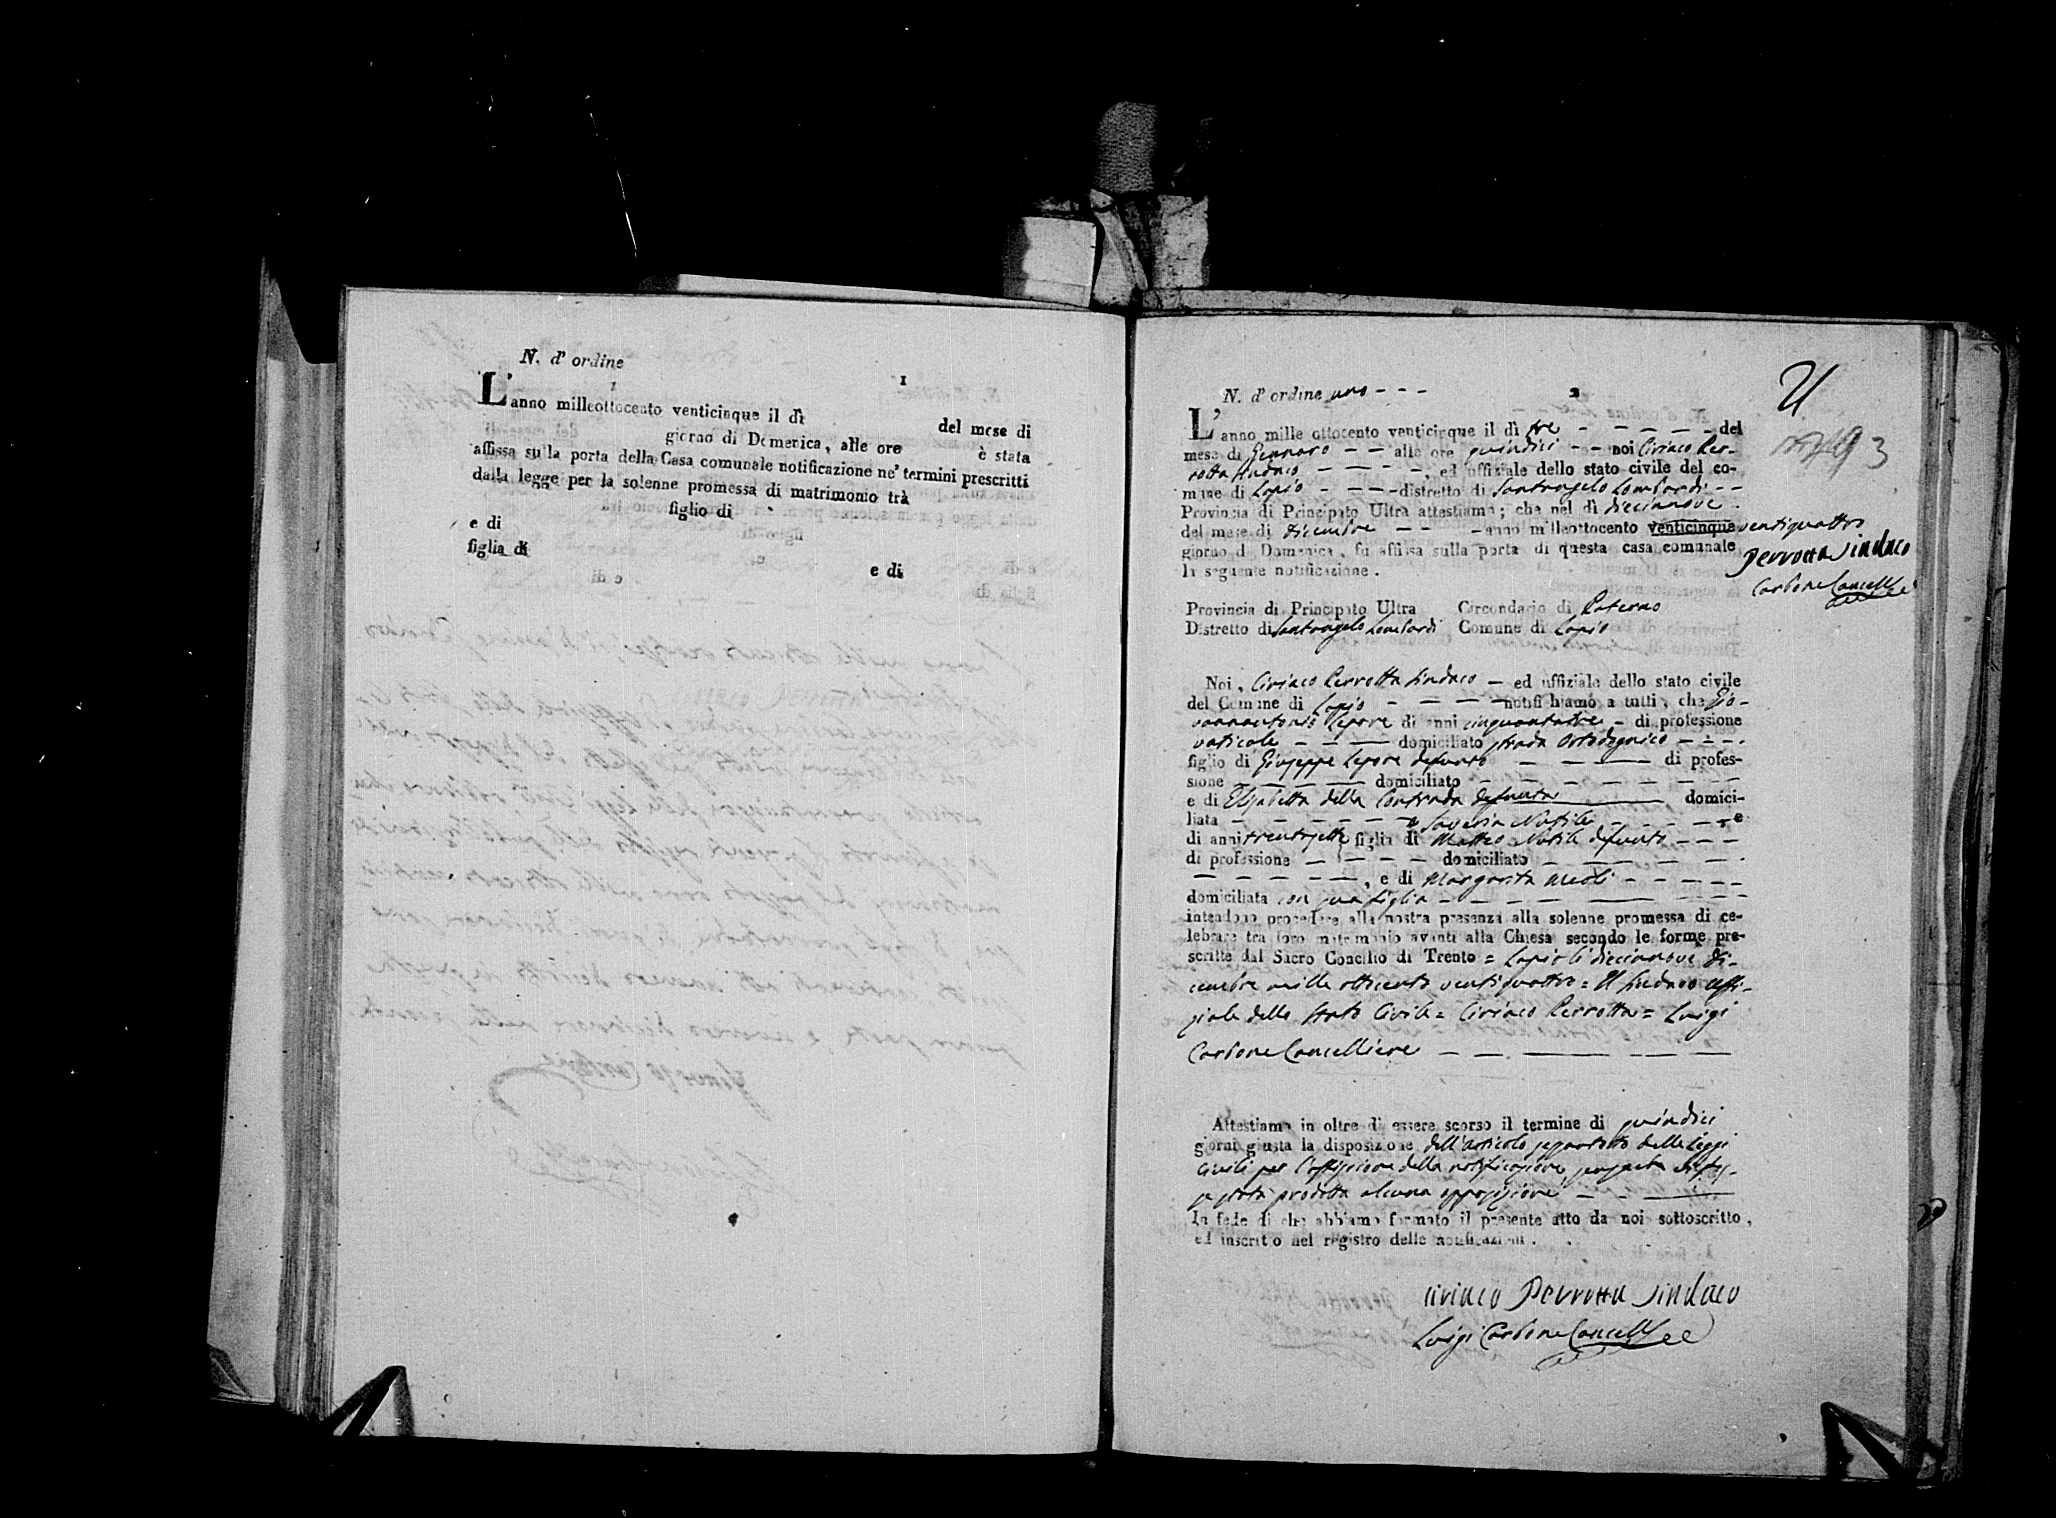 N. d' ordine
1
1
L' anno milleottocento venticinque il dì del mese di
giorno di Domenica, alle ore è stata
affissa sulla porta della Casa comunale notificazione ne' termini prescritti
dalla legge per la solenne promessa di matrimonio trà
figlio di
e di
figlia di
e di
N. d' ordine uno - - -
2
L' anno mille ottocento venticinque il dì tre - - - - - del
mese di Gennaro - - alle ore quindici - - noi Ciriaco Per-
rotta Sindaco - - - - -, ed uffiziale dello stato civile del co-
mune di Lapio - - - - distretto di Santangelo Lombardi - -
Provincia di Principato Ultra attestiamo; che nel dì diecianove -
del mese di Dicembre - - - anno milleottocento venticinque ventiquattro
giorno di Domenica, fu affissa sulla porta di questa casa comunale
la seguente notificazione.
Perrotta Sindaco
Carbone Cancell.e
Provincia di Principato Ultra Circondario di Paterno
Distretto di Santangelo Lombardi Comune di Lapio
Noi, Ciriaco Perrotta Sindaco - ed uffiziale dello stato civile
del Comune di Lapio - - - - notifichiamo a tutti, che Gio-
vannantonio Lepore di anni cinquantatre - di professione
vaticale - - - domiciliato strada - - -
figlio di Giuseppe Lepore defunto - - - di profes-
sione - - - domiciliato - - - - - -
e di Elisabetta della Contrada defunta - domici-
liata - - - - - - e Saveria Nutile - - - - e
di anni trentasette figlia di Matteo Nutile defunto - - -
di professione - - - - - domiciliato - - - - -
- - - - - -, e di Margarita Meoli - - - - -
domiciliata con sua figlia - - - - - - -
intendono procedere alla nostra presenza alla solenne promessa di ce-
lebrare tra loro matrimonio avanti alla Chiesa secondo le forme pre-
scritte dal Sacro Concilio di Trento = Lapio li diecianove Di-
cembre mille ottocento ventiquattro = Il Sindaco uffi-
ziale dello Stato Civile = Ciriaco Perrotta = Luigi
Carbone Cancelliere - - - - -
Attestiamo in oltre di essere scorso il termine di quindici
giorni giusta la disposizione dell'articolo settantotto delle Leggi
Civili per l'affissione della notificazione,
stata prodotta alcuna opposizione - - -
In fede di che abbiamo formato il presente atto da noi sottoscritto,
ed inscritto nel registro delle notificazioni.
Ciriaco Perrotta Sindaco
Luigi Carbone Cancell.e